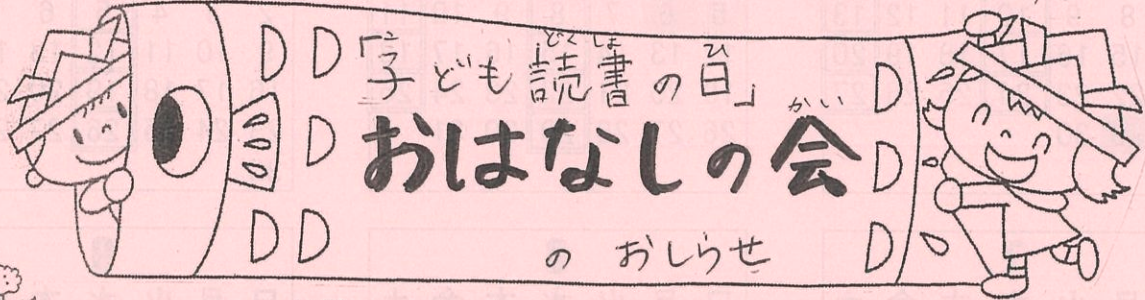 「子ども読書の日」
おはなしの会
の おしらせ